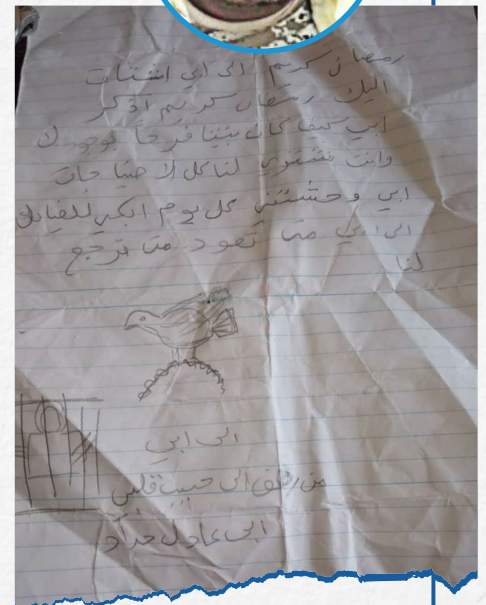 رمضان كريم الى ابي اشتات
اليك رمضان كريم اذكر
ابي كيف كان بيتنا فرحاً بوجودك
وانت تشتوي لنا كل الاحتياجات
ابي وحشتني كل يوم ابكي للفياك
الى ابي متى تعود متى ترجع
لنا
الى ابي
من الى حبيب قلبي
ابي عادل حداد